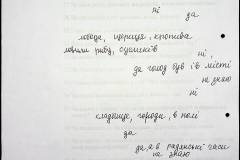 ні
да
лобода, щириця, кропива
ловили рибу, сушиків
ні,
да голод був і в місті
не знаю
ні
кладбище, города, в полі
да
да, а в радянські часи
не знаю